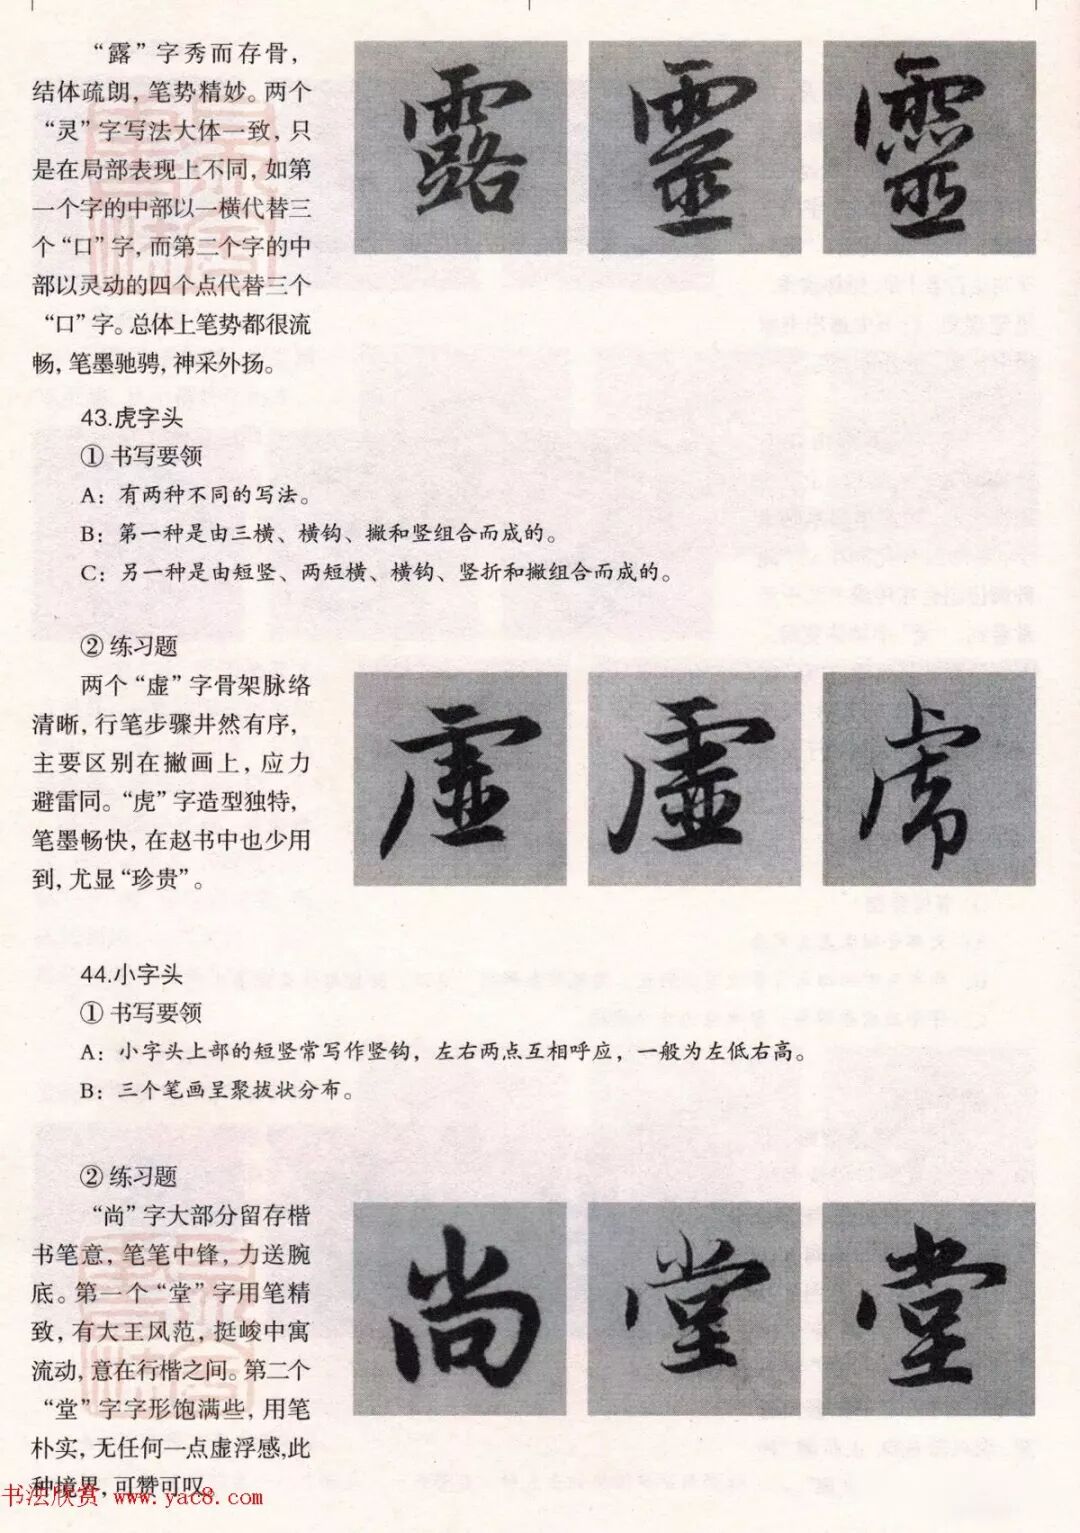 “露”字秀而存骨，
结体疏朗，笔势精妙。两个
“灵”字写法大体一致，只
是在局部表现上不同，如第
一个字的中部以一横代替三
个“口”字，而第二个字的中
部以灵动的四个点代替三个
“口”字。总体上笔势都很流
畅，笔墨驰骋，神采外扬。
露 靈 靈
43.虎字头
① 书写要领
A：有两种不同的写法。
B：第一种是由三横、横钩、撇和竖组合而成的。
C：另一种是由短竖、两短横、横钩、竖折和撇组合而成的。
② 练习题
两个“虚”字骨架脉络
清晰，行笔步骤井然有序，
主要区别在撇画上，应力
避雷同。“虎”字造型独特，
笔墨畅快，在赵书中也少用
到，尤显“珍贵”。
虚 虚 虎
44.小字头
① 书写要领
A：小字头上部的短竖常写作竖钩，左右两点互相呼应，一般为左低右高。
B：三个笔画呈聚拔状分布。
② 练习题
“尚”字大部分留存楷
书笔意，笔笔中锋，力送腕
底。第一个“堂”字用笔精
致，有大王风范，挺峻中寓
流动，意在行楷之间。第二个
“堂”字字形饱满些，用笔
朴实，无任何一点虚浮感,此
种境界，可赞可叹。
尚 堂 堂
书法欣赏 www.yac8.com